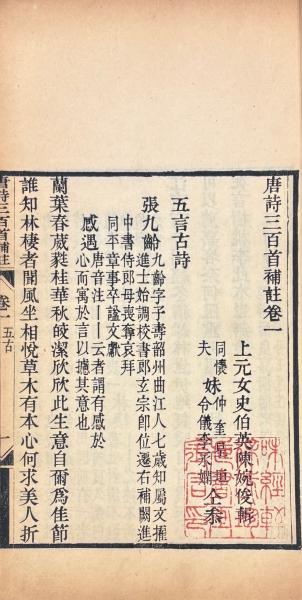 唐詩三百首補註卷一
上元女史伯英陳婉俊輯
同懷妹仲奎
夫令儀李
仝叅
五言古詩
張九齡
九齡字子壽韶州曲江人七歲知屬文擢
進士始調校書郎玄宗卽位遷右補闕進
中書侍郎母喪奪哀拜
同平章事卒謚文獻
感遇
唐音注｜｜云者謂有感於
心而寓於言以攄其意也
蘭葉春葳蕤桂華秋皎潔欣欣此生意自爾爲佳節
誰知林棲者聞風坐相悅草木有本心何求美人折
唐詩三百首補註
卷一
五古
一